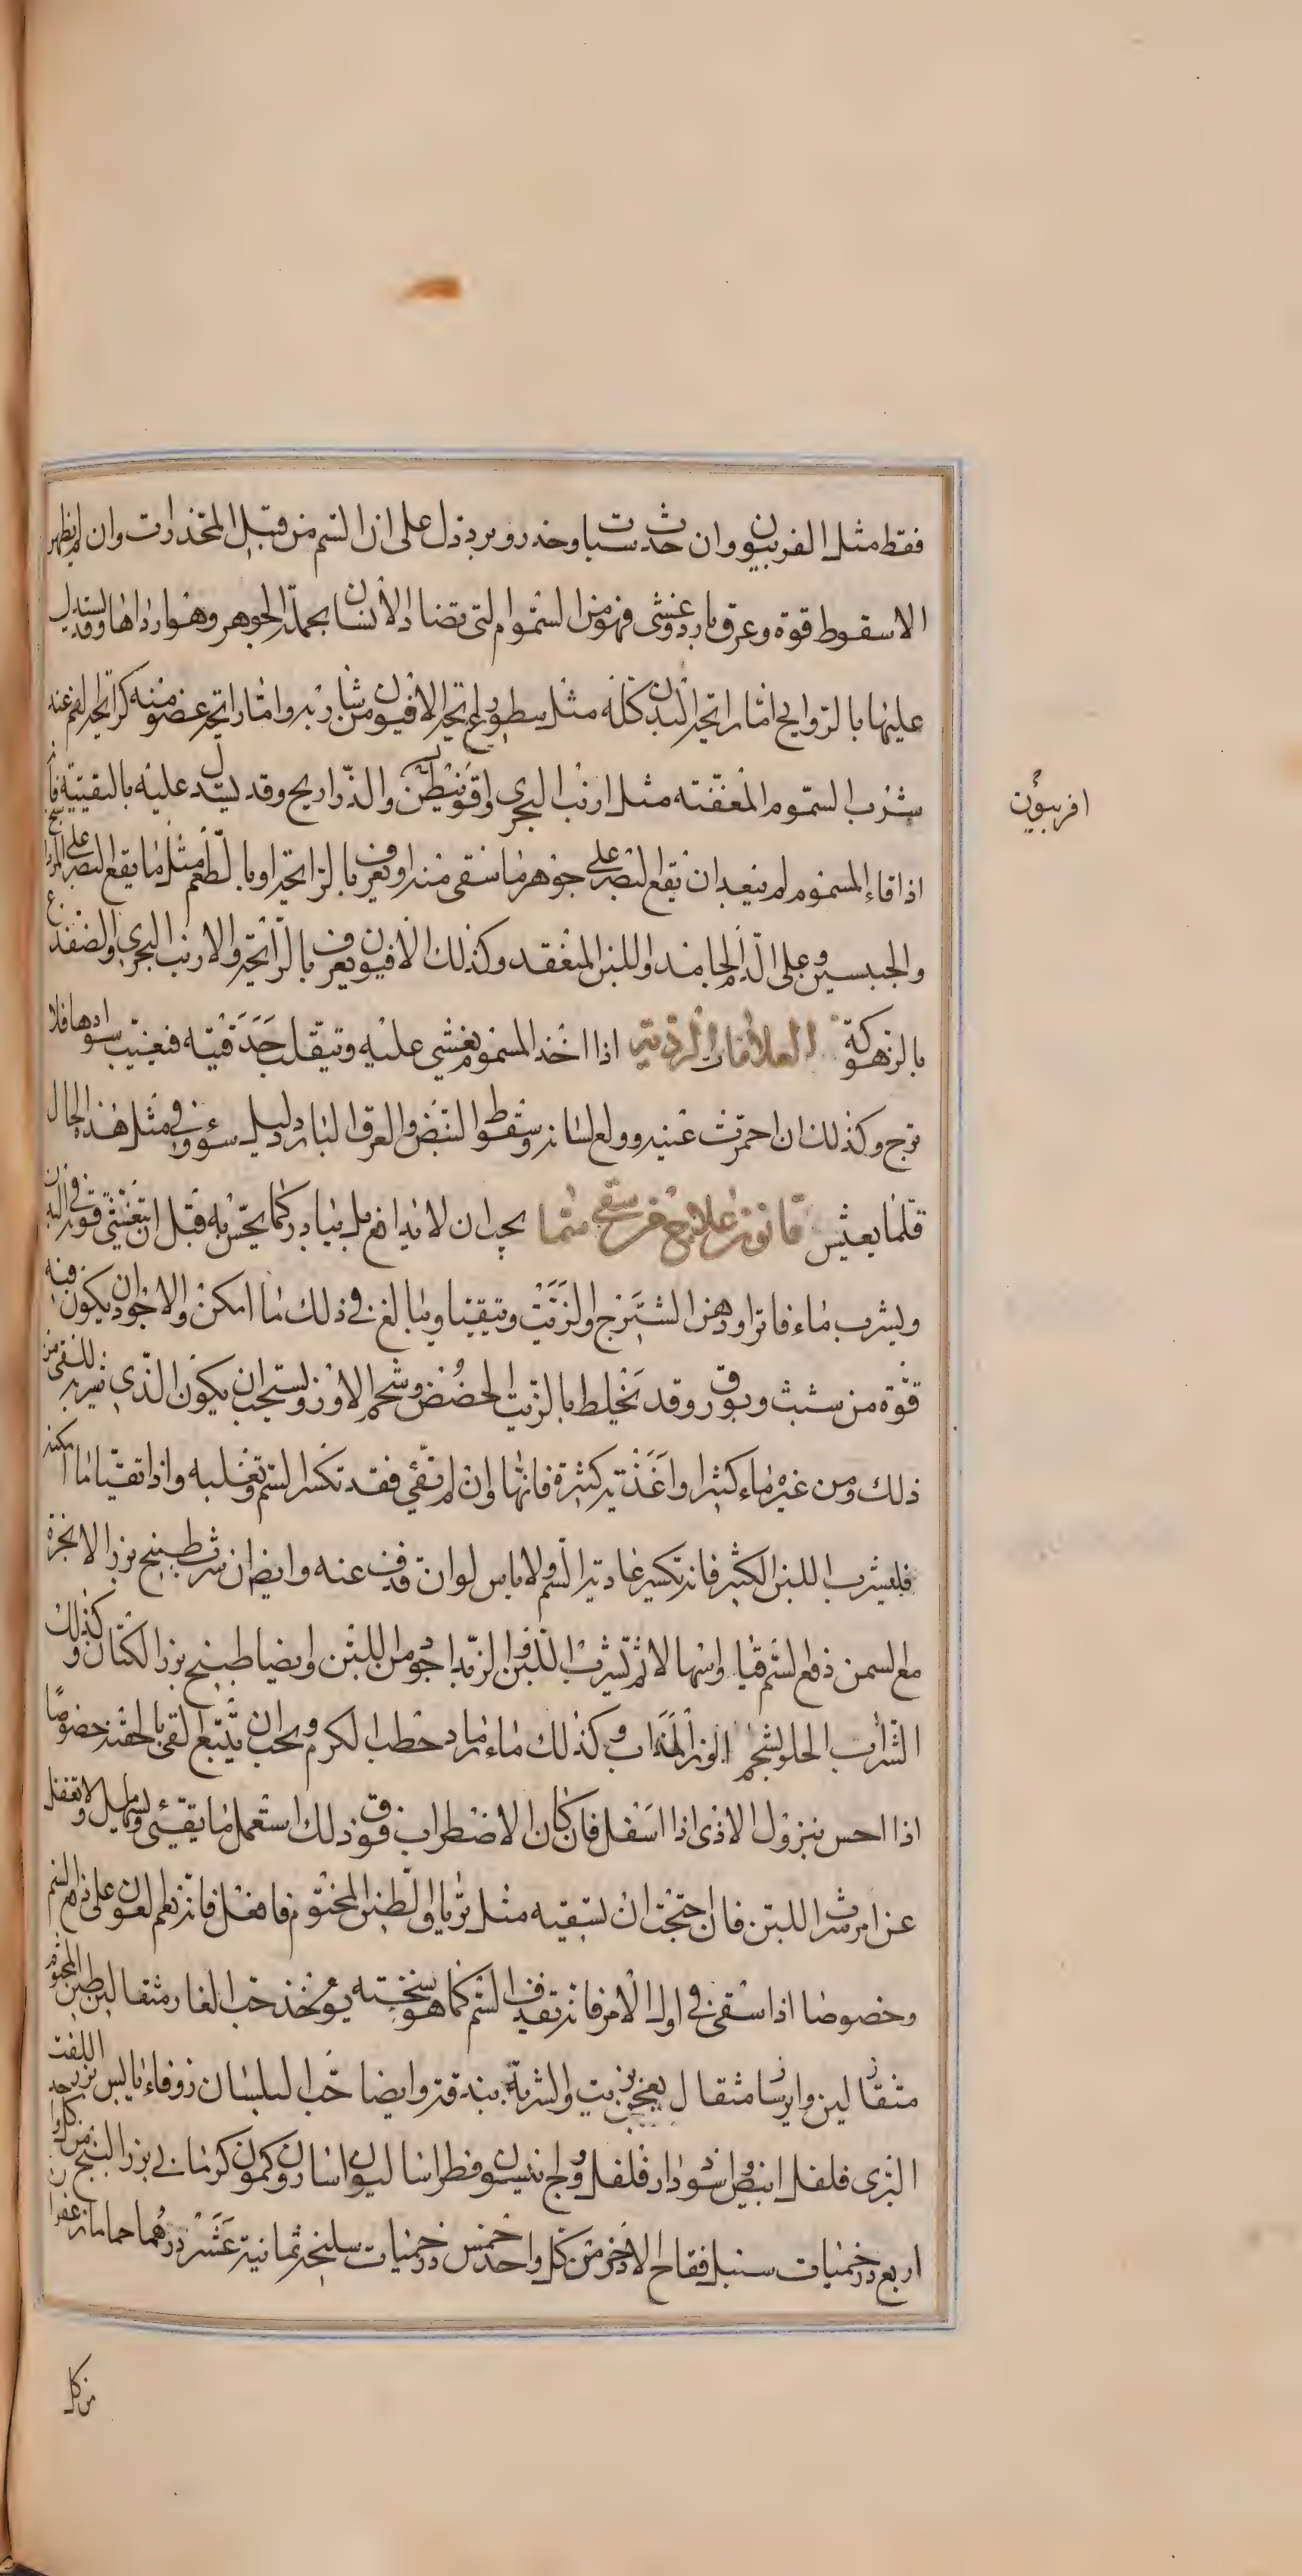 فقط مثل الفربيون وان حدث سبات وخدر وبرد دل على ان السم من قبيل المخدرات وان لم يظهر
الا سقوط قوة وعرق بارد وغشى فهو من السموم التى تضاد الانسان بجملة الجوهر وهو ارداها وقد يستدل
عليها بالروايح اما رائحة البدن كله مثل سطوع رائحة الافيون من شاربه واما رائحة عضو منه كرائحة الفم عند
شرب السموم المعفنه مثل ارنب البحرى واقونيطن والذراريح وقد يستدل عليه بالتقيئة فانه
اذا قاء المسموم لم يبعد ان يقع البصر على جوهر ما سقى منه او يعرف بالرائحة او بالطعم مثل ما يقع البصر على المرتك
والجبسين وعلى الدم الجامد واللبن المنعقد وكذلك الافيون يعرف بالرائحة والارنب البحرى والضفدع
بالزهوكة العلامات الردية اذا اخذ المسموم يغشى عليه وتنقلب حدقيته فيغيب سوادها فلا
ترج وكذلك ان احمرت عينيه وولع لسانه وسقط النبض والعرق البارد دليل سوء وفى مثل هذا الحال
قلما يعيش قانون علاج من سقى سما يجب ان لا يدافع بل يبادر كما يحس به قبل ان يتغشى قوته فى البدن
ويشرب ماء فاترا ودهن الشيرج او الزيت ويتقيا ويبالغ فى ذلك ما امكن والاجود ان يكون فيه
قوة من شبث وبورق وقد يخلط بالزيت الحضض وشحم الاوز ويستحب ان يكون الذى يشربه للقى من
ذلك ومن غيره ماء كثيرا واغذية كثيرة فانها وان لم تقئ فقد تكسر السم وتغلبه واذا تقيا ما امكنه
فليشرب اللبن الكثير فانه تكسير غادية السم ولا باس لو ان قذف عنه وايضا ان شرب طبيخ بزر الانجرة
مع السمن دفع السم قيا واسهالا ثم يشرب اللبن والزبد اجود من اللبن وايضا طبيخ بزر الكتان وكذلك
الشراب الحلو بشحم الوز المذاب وكذلك ماء رماد حطب الكرم ويجب ان يتبع القى بالحقنه خصوصا
اذا احس بنزول الاذى اذا اسفل فان كان الاضطراب فوق ذلك استعمل ما يقئى ويسهل ولا تغفل
عن امر شرب اللبن فان احتجت ان تسقيه مثل ترياق الطين المختوم فافعل فانه نعم العون على دفع السم
وخصوصا اذا سقى فى اول الامر فانه تقذف السم كما هو نسخته يؤخذ حب الغار مثقالين طين المختوم
مثقالين وايرسا مثقال يعجن بزيت والشربة بندقة وايضا حب البلسان زوفاء يابس بزر اللفت
البرى فلفل ابيض واسود دار فلفل وج نيسون فطراساليون اسارون وكمون كرمانى بزر البنج من كل واحد
اربع درخميات سنبل فقاح الاذخر من كل واحد خمس درخميات سليخة ثمانية عشر درهما حماما زعفران
من كل
افربيون